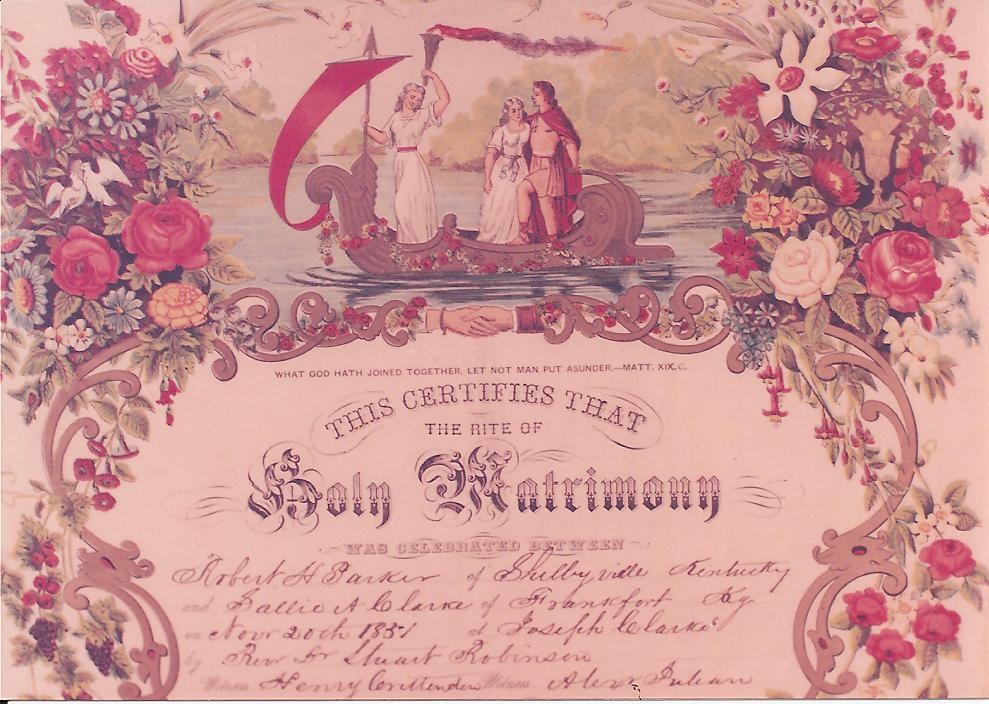 WHAT GOD HATH JOINED TOGETHER, LET NOT MAN PUT ASUNDER.—MATT. XIX. 6.
THIS CERTIFIES THAT
THE RITE OF
Holy Matrimony
WAS CELEBRATED BETWEEN
Robert H Parker of Shelbyville Kentucky
and Sallie A Clarke of Frankfort Ky
on Novr 20th 1851 at Joseph Clarke's
by Revr Dr Stuart Robinson
Witness Henry Crittenden Witness Alexr Julian